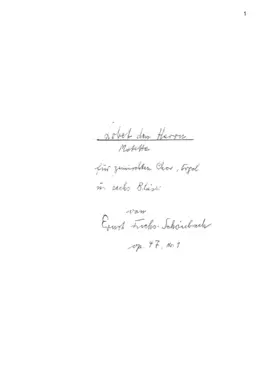 1
Lobet den Herrn
Motette
für gemischten Chor, Orgel
u. sechs Bläser
von
Ernst Fuchs-Schönbach
op. 47, nr. 1